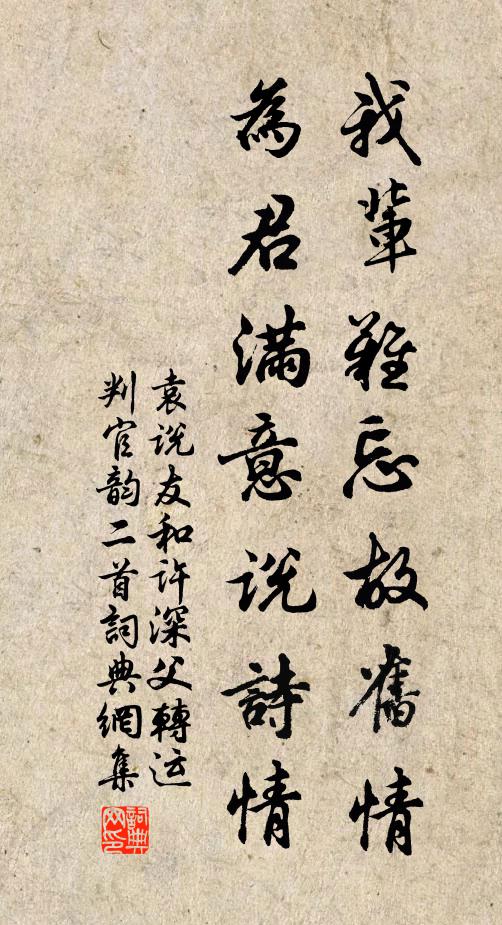 我輩難忘故舊情
為君滿意說詩情
袁说友和许深父轉运
判官韵二首詞典網集
詞典网印